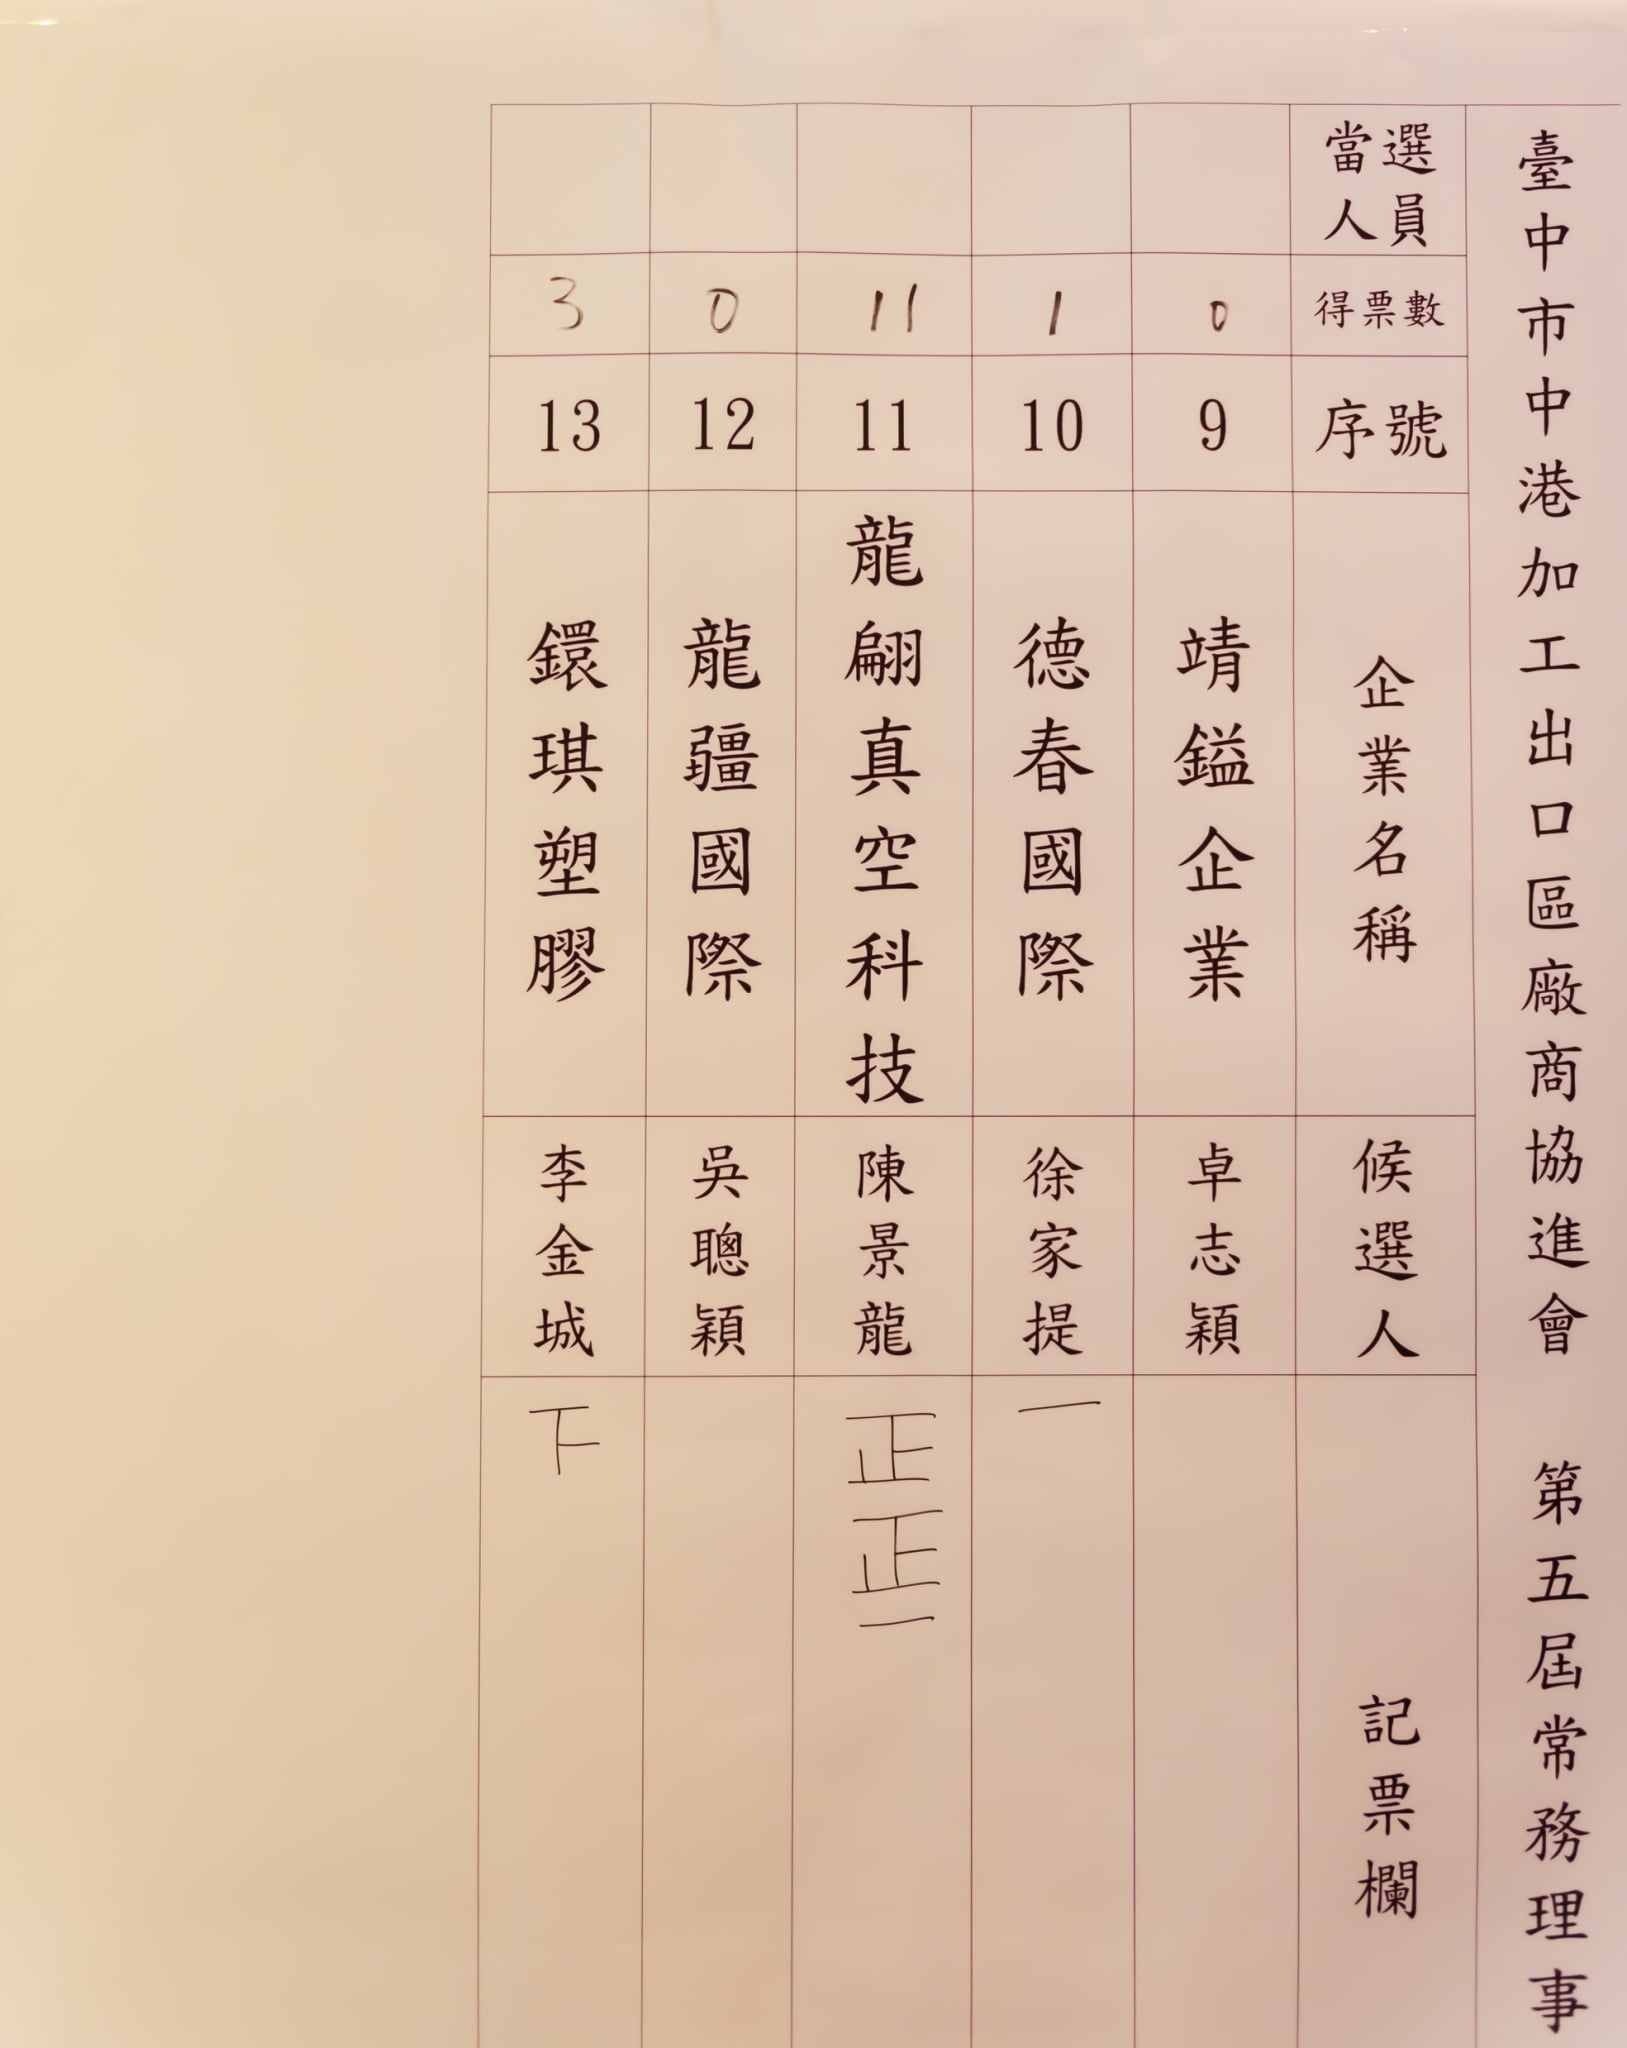 臺中市中港加工出口區廠商協進會 第五屆常務理事
當選人員
得票數
序號
企業名稱
候選人
記票欄
0
9
靖鎰企業
卓志穎
1
10
德春國際
徐家提
一
11
11
龍翩真空科技
陳景龍
正正一
0
12
龍疆國際
吳聰穎
3
13
鐶琪塑膠
李金城
下